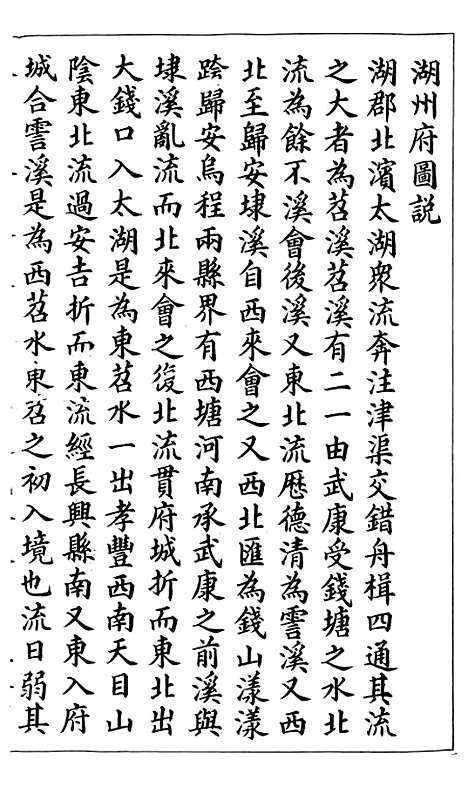 湖州府圖説
湖郡北濱太湖衆流奔注津渠交錯舟楫四通其流
之大者為苕溪苕溪有二一由武康受錢塘之水北
流為餘不溪會後溪又東北流厯德清為霅溪又西
北至歸安埭溪自西來會之又西北匯為錢山漾漾
跨歸安烏程兩縣界有西塘河南承武康之前溪與
埭溪亂流而北來會之復北流貫府城折而東北出
大錢口入太湖是為東苕水一出孝豐西南天目山
陰東北流過安吉折而東流經長興縣南又東入府
城合霅溪是為西苕水東苕之初入境也流曰弱其